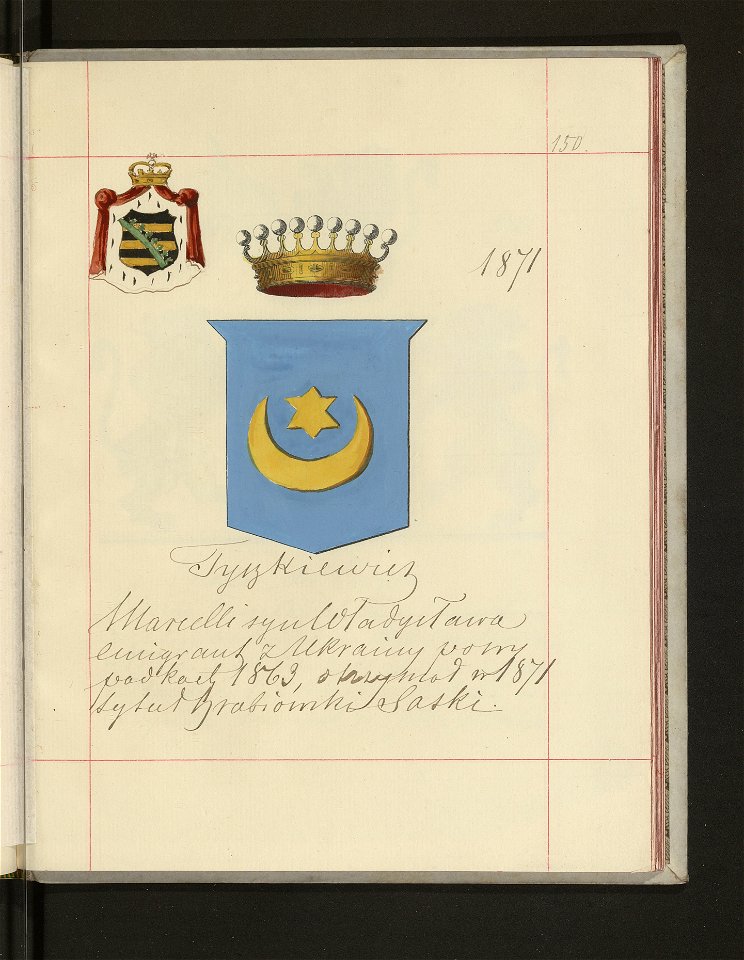 150.
1871
Tyszkiewicz
Marcelli syn Władysława
emigrant z Ukrainy po wy
padkach 1863, otrzymał w 1871
tytuł Hrabiowski Saski.